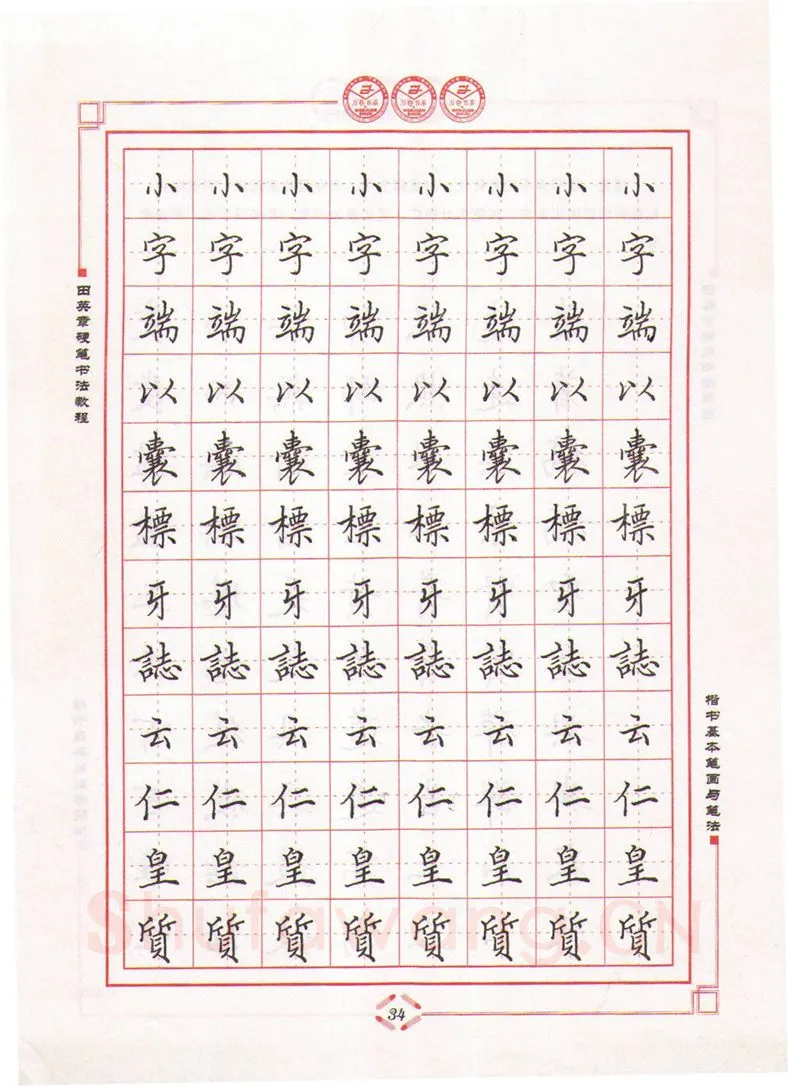 万卷书系 万卷书系 万卷书系
田英章硬笔书法教程
小 小 小 小 小 小 小 小
字 字 字 字 字 字 字 字
端 端 端 端 端 端 端 端
以 以 以 以 以 以 以 以
囊 囊 囊 囊 囊 囊 囊 囊
標 標 標 標 標 標 標 標
牙 牙 牙 牙 牙 牙 牙 牙
誌 誌 誌 誌 誌 誌 誌 誌
云 云 云 云 云 云 云 云
仁 仁 仁 仁 仁 仁 仁 仁
皇 皇 皇 皇 皇 皇 皇 皇
質 質 質 質 質 質 質 質
楷书基本笔画与笔法
Shufawang.CN
34